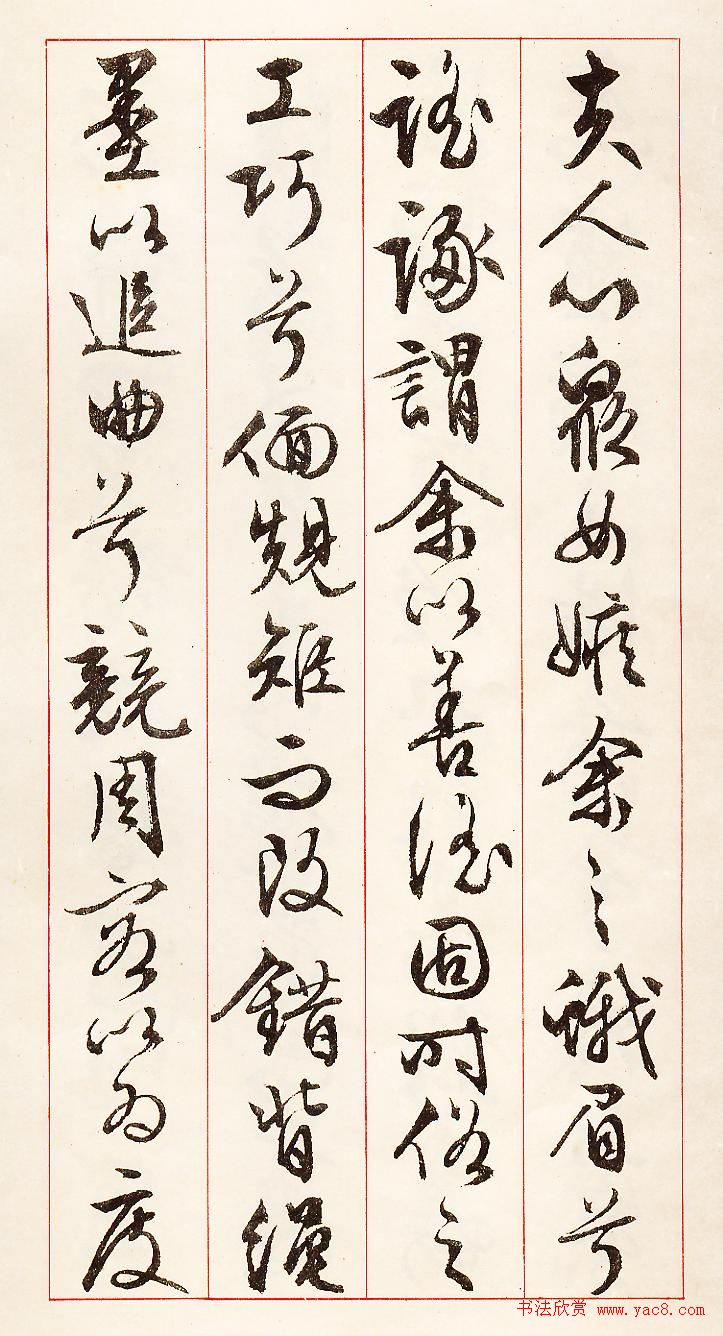 夫人心眾女嫉余之蛾眉兮
謠諑謂余以善淫固時俗之
工巧兮偭規矩而改錯背繩
墨以追曲兮競周容以為度
书法欣赏 www.yac8.com